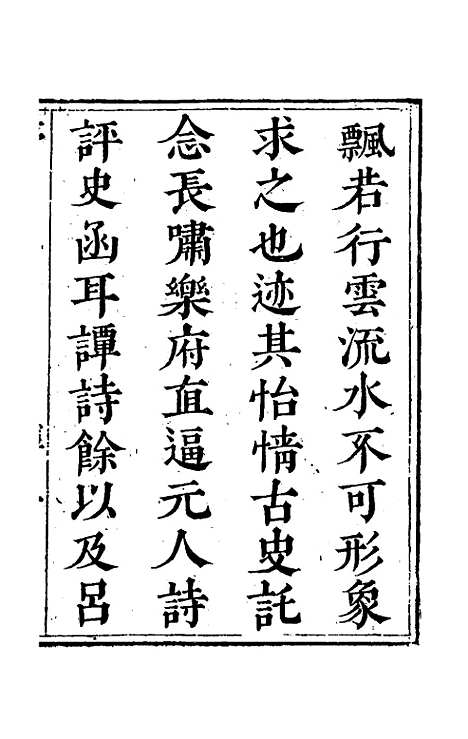 飄若行雲流水不可形象
求之也迹其怡情古史託
念長嘯樂府直逼元人詩
評史函耳譚詩餘以及呂